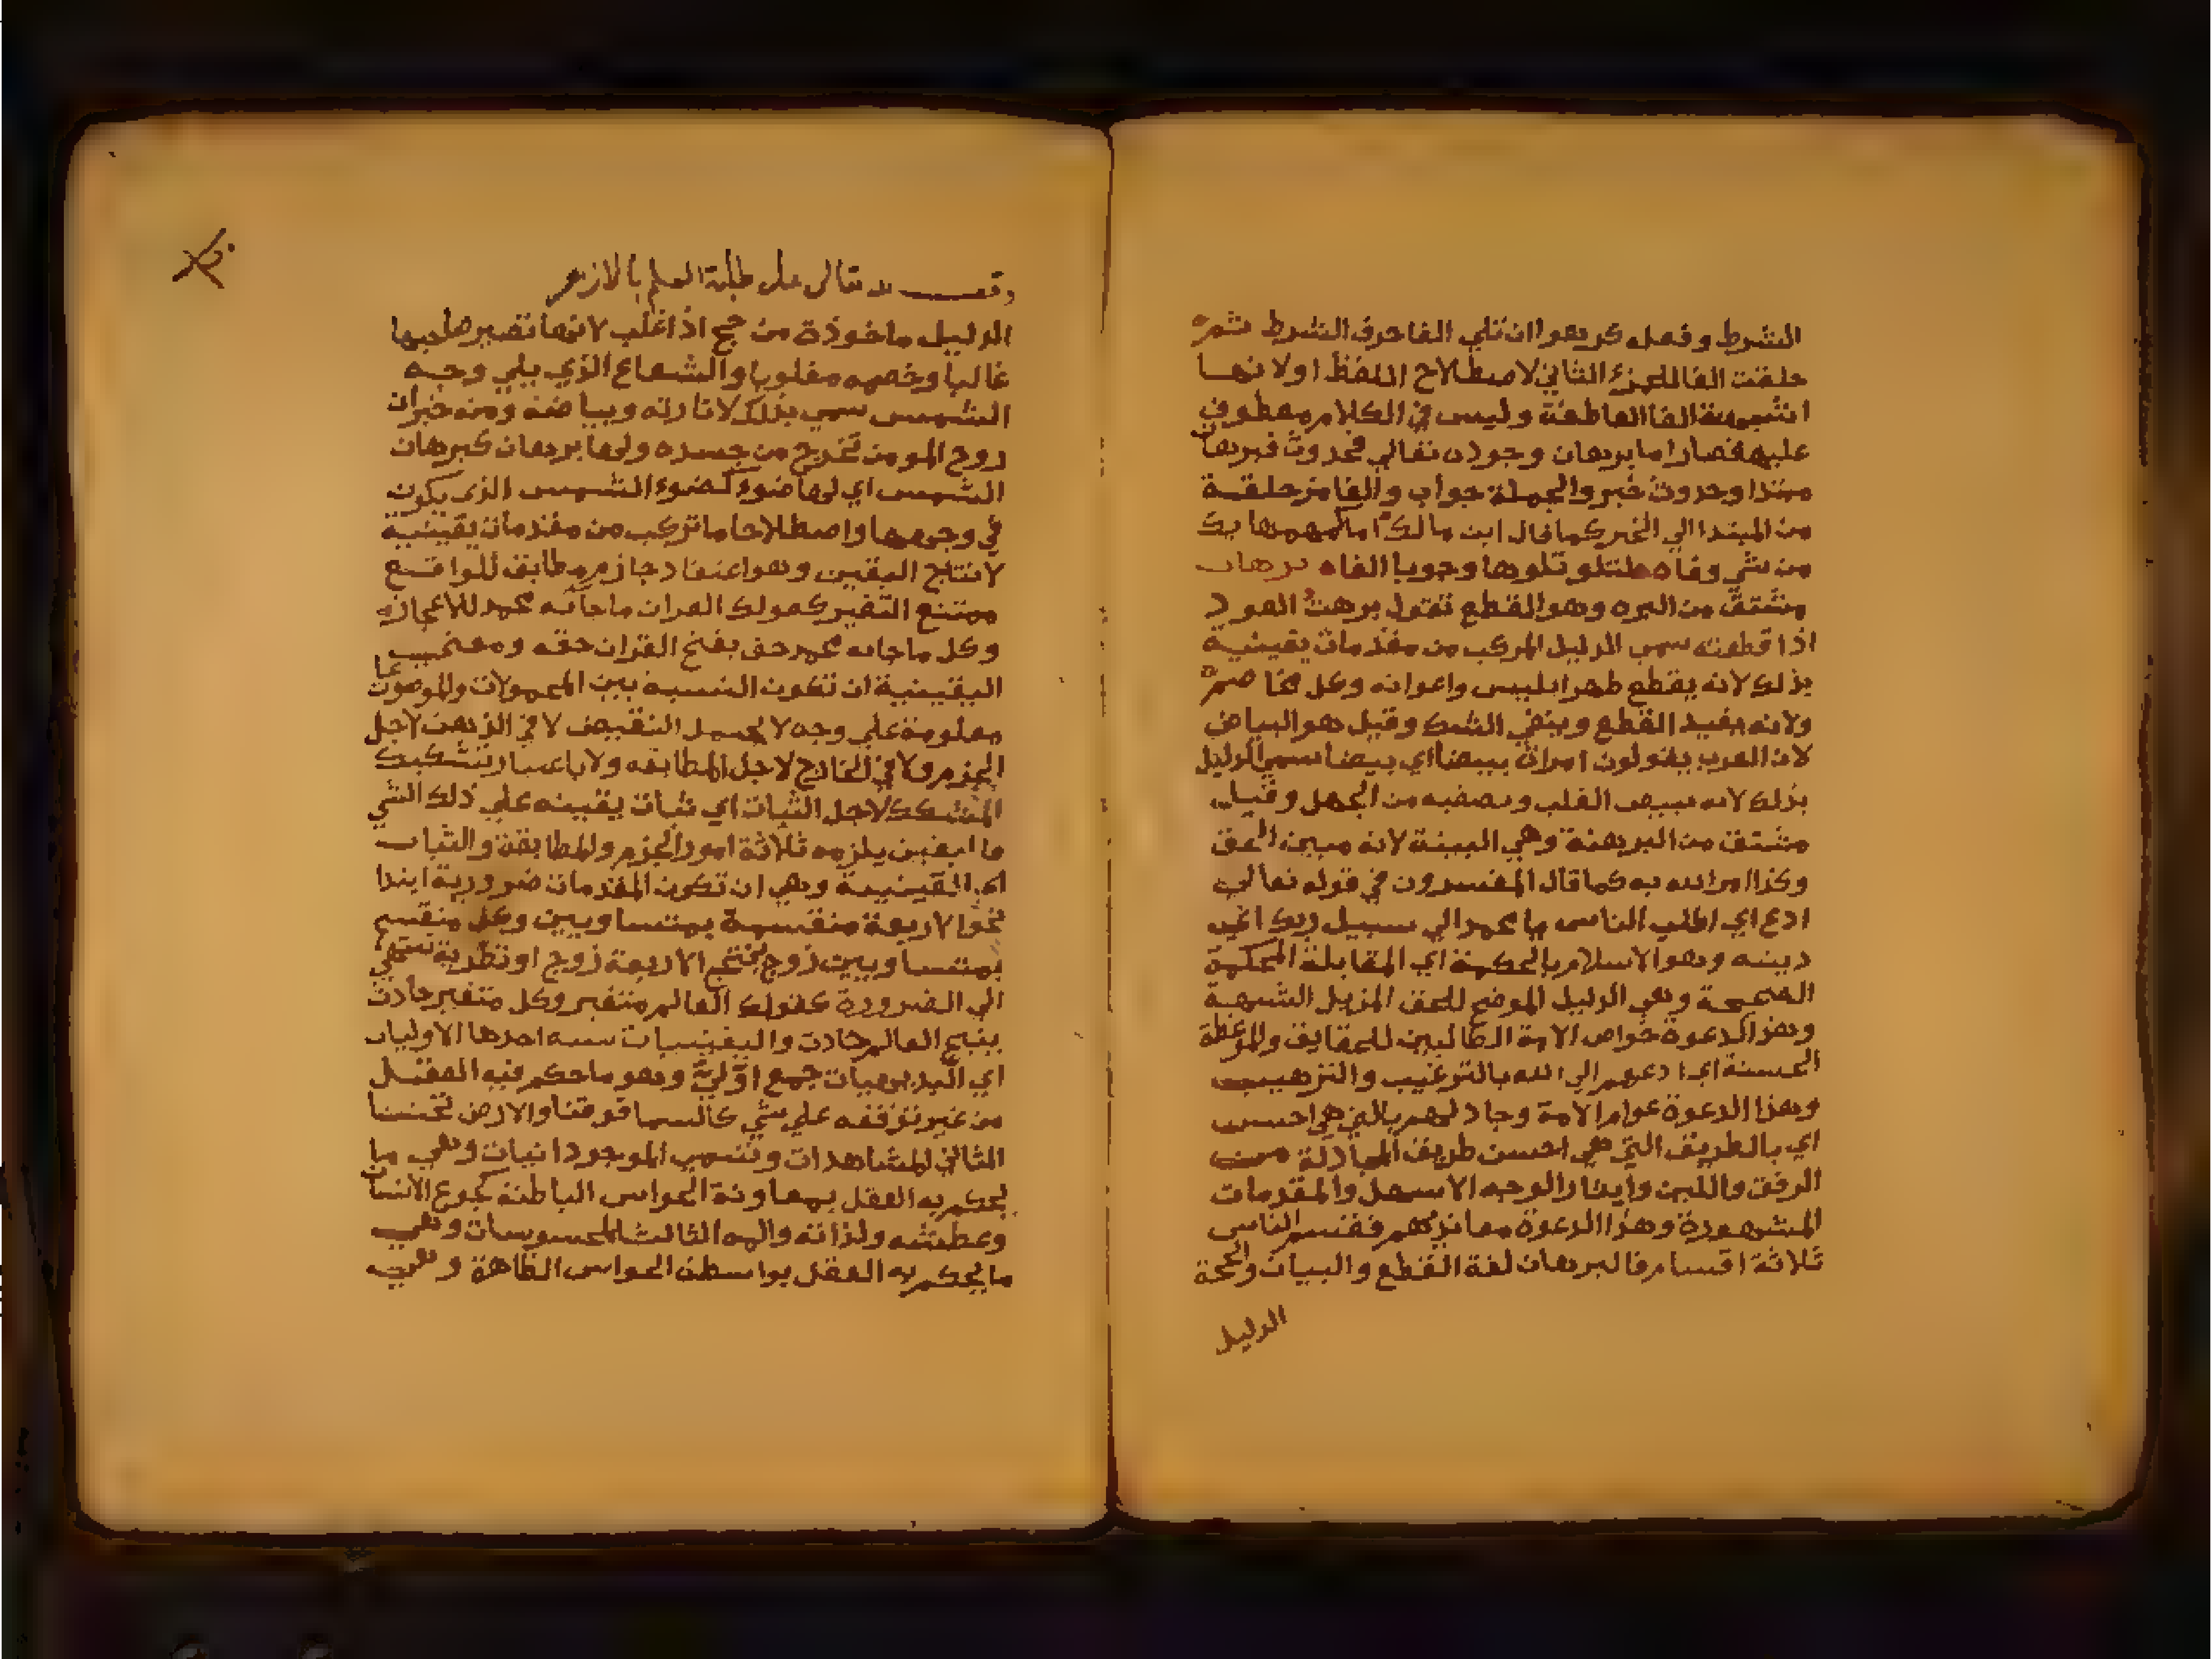 الشرط وفعله كرهوا ان تلي الفا حرف الشرط ثم
حلقت الفا للجزء الثاني لاصطلاح اللفظ او لانها
اشبهت الفا العاطفة وليس في الكلام معطوف
عليه فصار اما برهان وجوده تعالي فحدوث فبرهان
مبتدا وحدوث خبر والجملة جواب والفا مزحلقة
من المبتدا الي الخبر كما قال ابن مالك اما كمهما يك
من شي وفا لتلو تلوها وجوبا الفاه برهان
مشتق من البره وهو القطع تقول برهت العود
اذا قطعته سمي الدليل المركب من مقدمات يقينية
بذلك لانه يقطع ظهر ابليس واعوانه وكل مخاصم
ولانه يفيد القطع وينفي الشك وقيل هو البياض
لان العرب يقولون امراة بيضا اي بيضا سمي الدليل
بذلك لانه يبيض القلب ويصفيه من الجهل وقيل
مشتق من البرهنة وهي البينة لانه مبين الحق
وكذا امر الله به كما قال المفسرون في قوله تعالي
ادع اي اطلب الناس يا محمد الي سبيل ربك اي
دينه وهو الاسلام بالحكمة اي المقابلة المحكمة
الصحيحة وهي الدليل الموضح للحق المزيل الشبهة
وهذا لدعوة خواص الامة الطالبين للحقايق والموعظة
الحسنة اي ادعهم الي الله بالترغيب والترهيب
وهذا الدعوة عوام الامة وجادلهم بالتي هي احسن
اي بالطريق التي هي احسن طريق المجادلة من
الرفق واللين وايثار الوجه الاسهل والمقدمات
المشهورة وهذا الدعوة معاندهم فقسم الناس
ثلاثة اقسام فالبرهان لغة القطع والبيان والحجة
الدليل
وقف لله تعالى على طلبة العلم بالازهر
الدليل ماخوذة من حج اذا غلب لانها تصير صاحبها
غالبا وخصمه مغلوبا والشعاع الذي يلي وجه
الشمس سمي بذلك لانارته وبياضه ومنه خبر ان
روح المومن تخرج من جسده ولها برهان كبرهان
الشمس اي لها ضوء كضوء الشمس الذي يكون
في وجهها واصطلاحا ما تركب من مقدمات يقينية
لانتاج اليقين وهو اعتقاد جازم مطابق للواقع
ممتنع التغير كقولك القران ما جا به محمد للاعجاز به
وكل ما جا به محمد حق ينتج القران حقه ومعني
اليقينية ان تكون النسبة بين المحمولات والموضوعات
معلومة علي وجه لا يحتمل النقيض لا في الذهن لاجل
الجزم ولا في الخارج لاجل المطابقه ولا باعتبار تشكيك
المشكك لاجل الثبات اي ثبات يقينه علي ذلك الشي
فاليقين يلزمه ثلاثة امور الجزم والمطابقة والثبات
اي اليقينية وهي ان تكون المقدمات ضرورية ابتدا
نحو الاربعة منقسمة بمتساويين وكل منقسم
بمتساويين زوج ينتج الاربعة زوج او نظرية تنتهي
الي الضرورة كقولك العالم متغير وكل متغير حادث
ينتج العالم حادث واليقينيات سته احدها الاوليات
اي البديهيات جمع اوّلي وهو ما حكم فيه العقل
من غير توقفه علي شي كالسما فوقنا والارض تحتنا
الثاني المشاهدات وتسمي الموجودانيات وهي ما
يحكم به العقل بمعاونة الحواس الباطنة كجوع الانسان
وعطشه ولذاته والمه الثالث المحسوسات وهي
ما يحكم به العقل بواسطة الحواس الظاهرة وهي